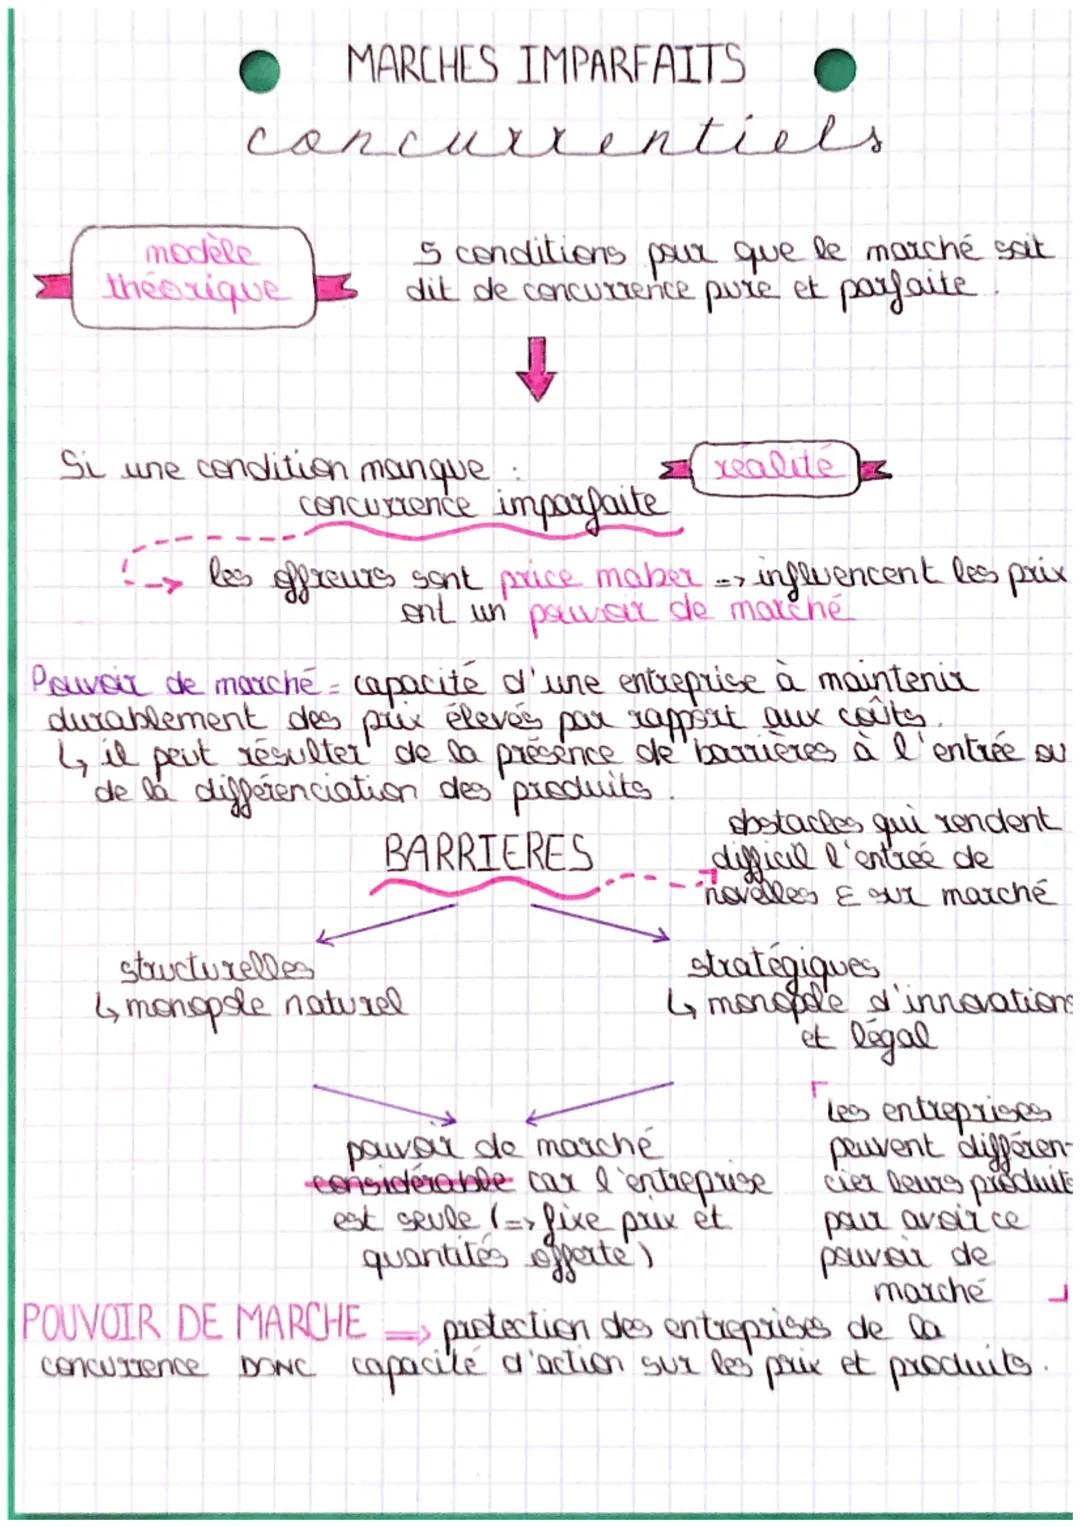 MARCHES IMPARFAITS
concurrentiels
modèle
théorique
5 conditions pour que le marché soit
dit de concurrence pure et parfaite.
Si une condition manque :
réalité
concurrence imparfaite
les offreurs sont price maker => influencent les prix
ont un pouvoir de marché
Pouvoir de marché = capacité d'une entreprise à maintenir
durablement des prix élevés par rapport aux coûts.
↳ il peut résulter de la présence de barrières à l'entrée ou
de la différenciation des produits.
BARRIERES
obstacles qui rendent
difficil l'entrée de
novelles E sur marché
structurelles
↳ monopole naturel
stratégiques
↳ monopole d'innovations
et légal
pouvoir de marché
considérable car l'entreprise
est seule (=> fixe prix et
quantités offerte)
Les entreprises
peuvent différen-
cier leurs produits
pour avoir ce
pouvoir de
marché
POUVOIR DE MARCHE => protection des entreprises de la
concurrence DONC capacité d'action sur les prix et produits.